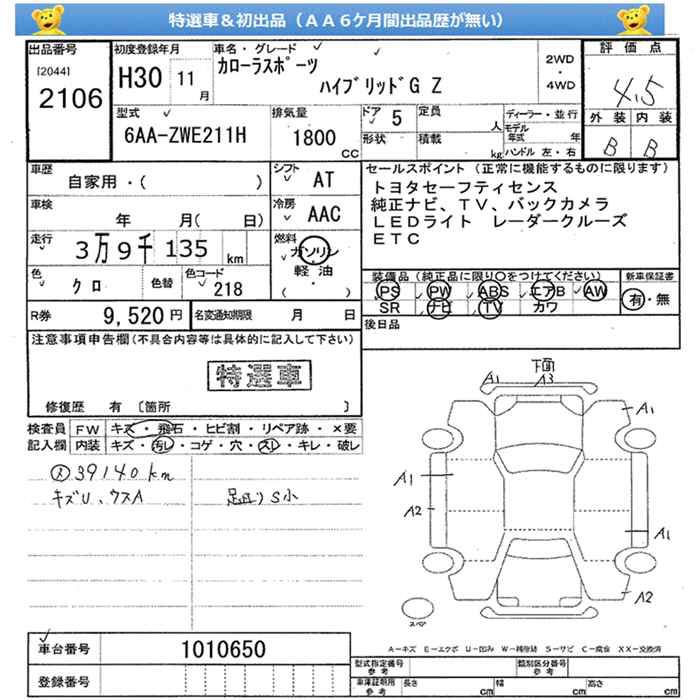 特選車＆初出品（ＡＡ６ケ月間出品歴が無い）
出品番号
[2044]
2106
初度登録年月
H30 11月
車名・グレード
カローラスポーツ
ハイブリッドG Z
2WD
・
4WD
評価点
4.5
外装 内装
B B
型式
6AA-ZWE211H
排気量
1800
CC
ドア 5
形状
定員
人
積載
kg
ディーラー・並行
モデル年式 年
ハンドル 左・右
車歴
自家用・( )
シフト
AT
車検
年 月( 日)
冷房
AAC
走行
3万9千135km
燃料
ガソリン
軽油
( )
色
クロ
色替
色コード
218
R券
9,520円
名変通知期限 月 日
セールスポイント（正常に機能するものに限ります）
トヨタセーフティセンス
純正ナビ、TV、バックカメラ
LEDライト レーダークルーズ
ETC
装備品（純正品に限り○をつけてください）
PS PW ABS エアB AW
SR ナビ TV カワ
新車保証書
有・無
後日品
注意事項申告欄(不具合内容等は具体的に記入して下さい)
特選車
修復歴 有〔箇所 〕
検査員
記入欄
FW キズ・飛石・ヒビ割・リペア跡・×要
内装 キズ・汚レ・コゲ・穴・スレ・キレ・破レ
39140km
キズU、ウスA
足廻りS小
下面
A1
A3
A1
A1
A2
A1
A2
スペア
A－キズ E－エクボ U－凹み W－補修跡 S－サビ C－腐食 XX－交換済
車台番号
1010650
登録番号
型式指定番号
参考
類別区分番号
参考
車庫証明用
参考
長さ cm
幅 cm
高さ cm